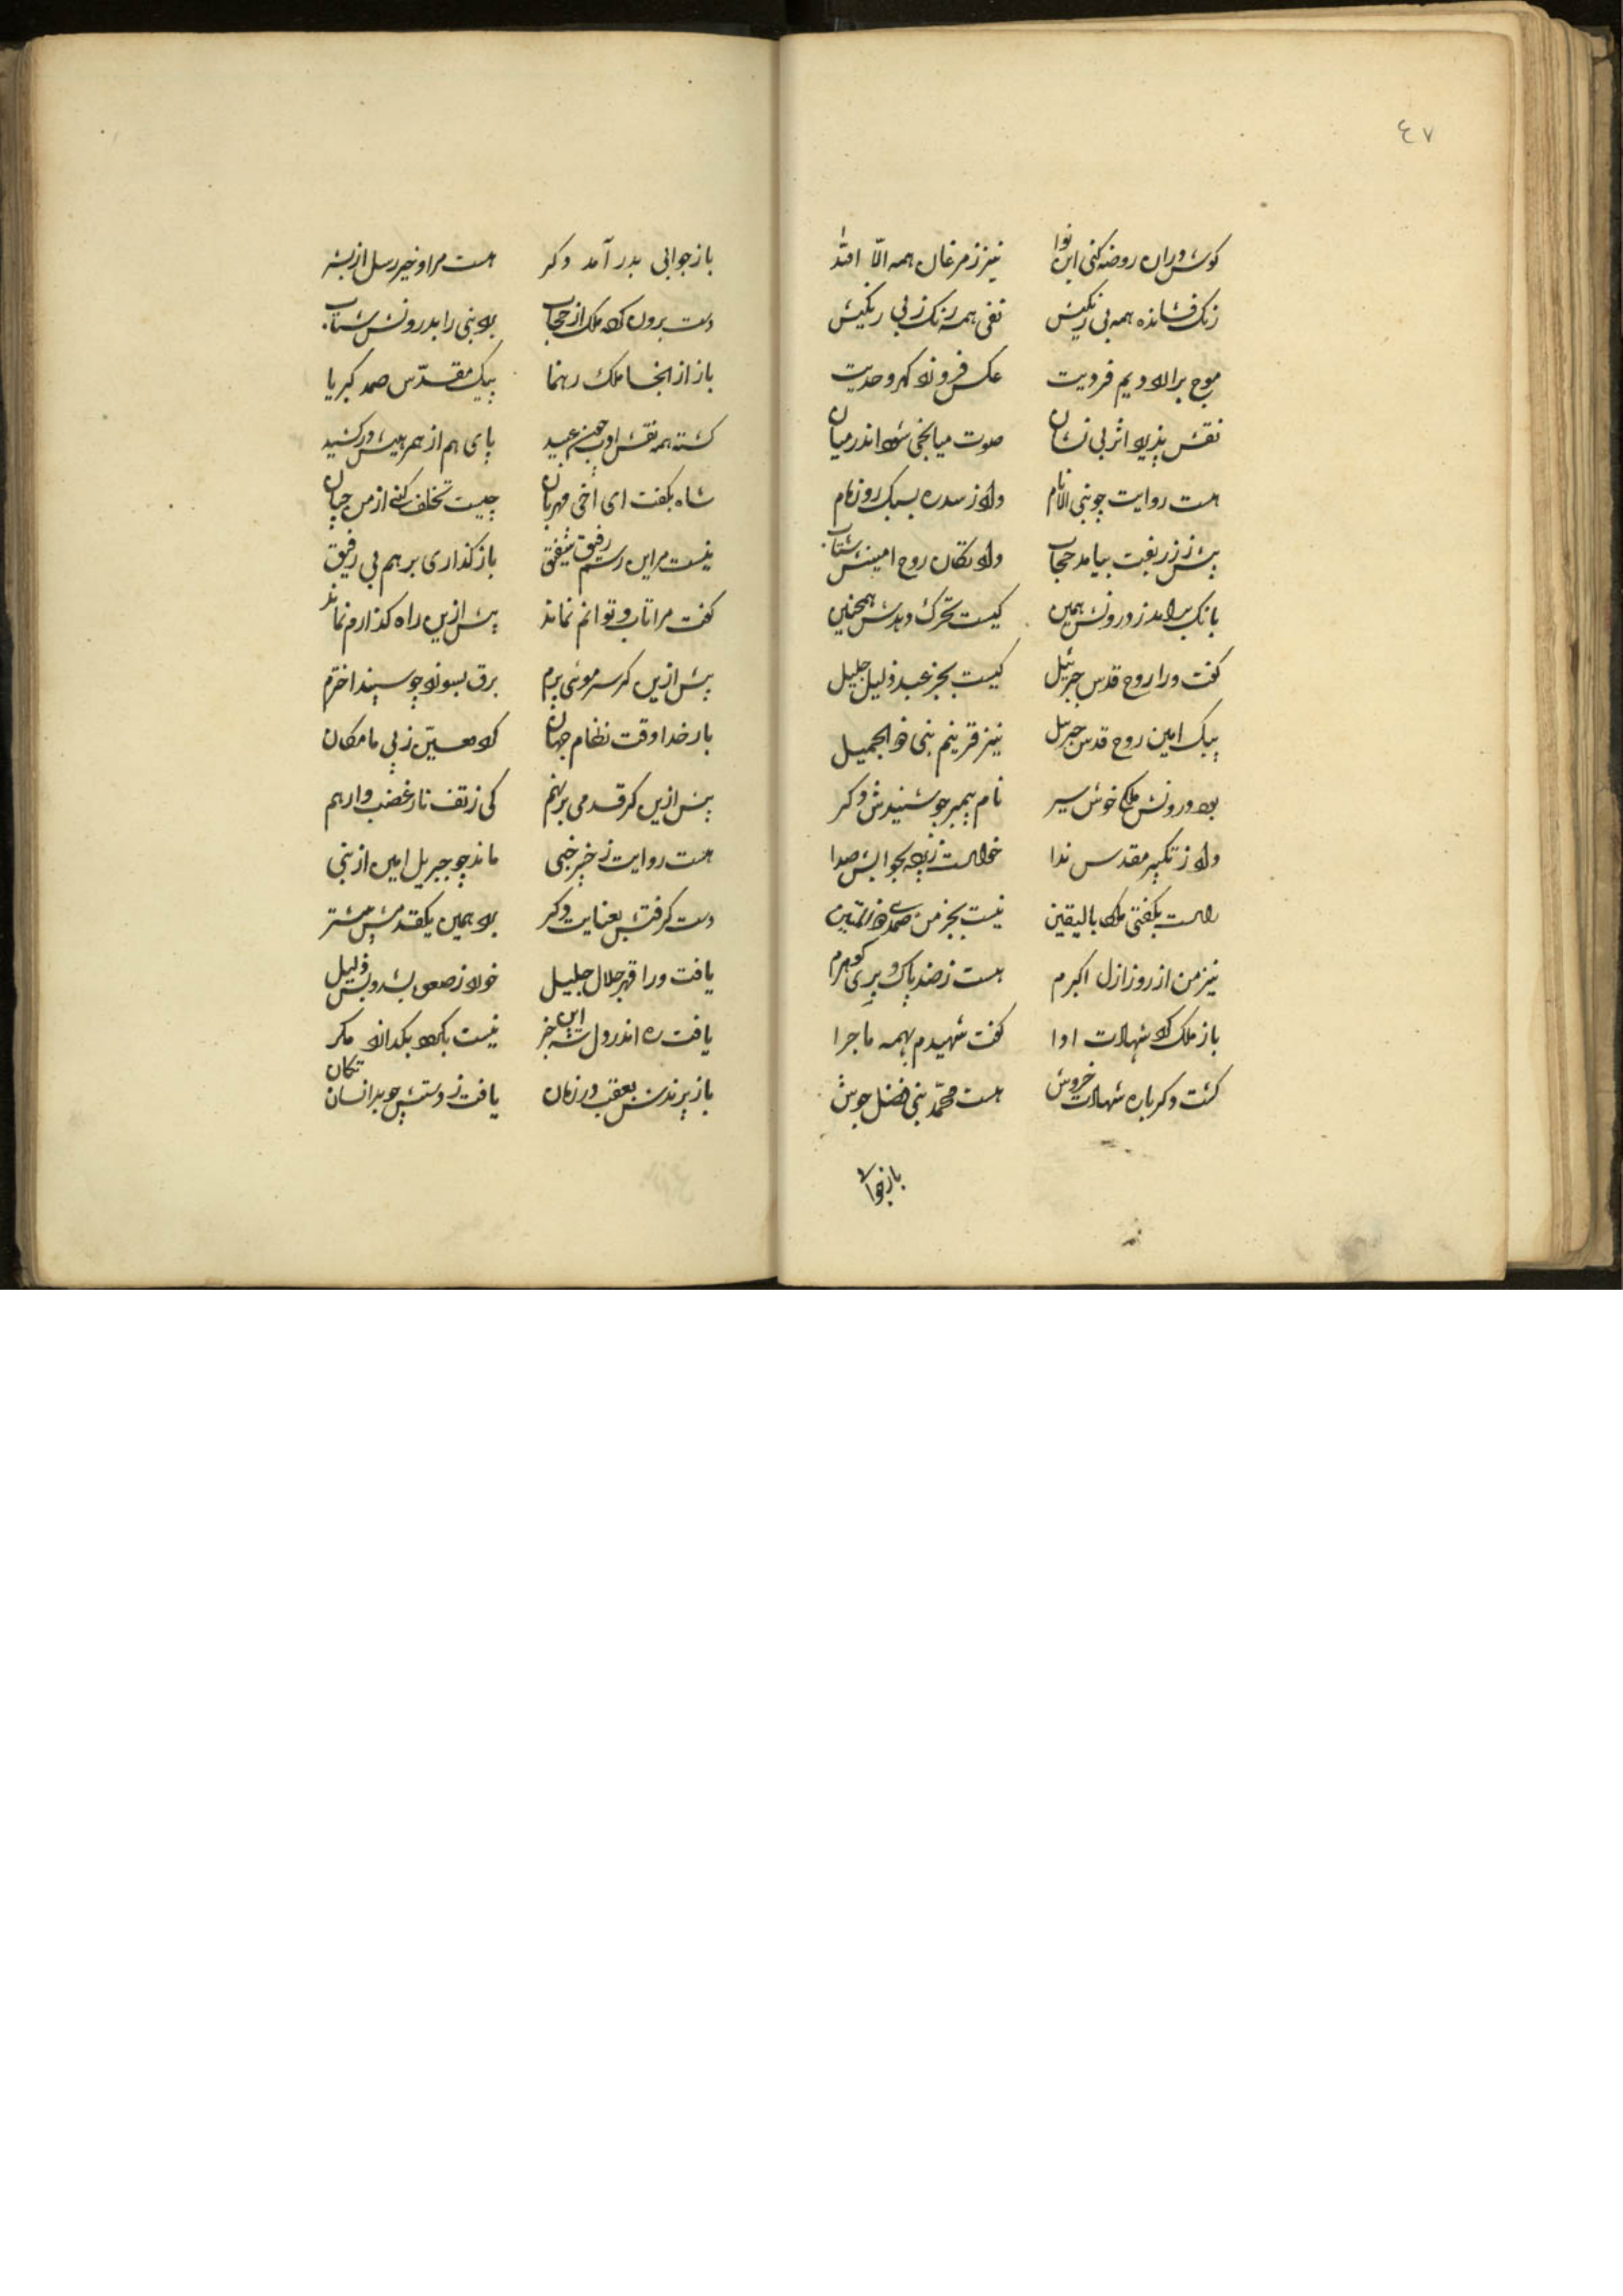 ٤٧
کوش دران روضه کنی این نوا نیز ز مرغان همه الّا الله
زنک فشانده همه بی رنکیش نفی همه رنک ز بی رنکیش
موج براورد یم فردیت عکس فزوند کهر وحدیت
نقش پذیرد اثر بی نشان صوت میانجی شود اندر میان
هست روایت چو نبی الانام داد ز سدره بسبک رو زمام
پیش ز زربفت بیامد حجاب داد تکان روح امینش شتاب
بانک برامد ز درونش همین کیست تحرک دهدش همچنین
کفت ورا روح قدس جبرئیل کیست بجز عبد ذلیل جلیل
پیک امین روح قدس جبرئیل نیز قرینم نبی ذو الجمیل
بود درونش ملکی خوش سیر نام پیمبر چو شنیدش دکر
داد ز تکبیر مقدس ندا خواست ز پرده بجوابش صدا
راست بکفتی ملکا بالیقین نیست بجز من صمدی
نیز من از روز ازل اکبرم هست ز ضد پاک و بری کوهرم
باز ملک کرد شهادت ادا کفت شهیدم بهمه ماجرا
کشت دکرباره شهادت خروش هست محمّد نبی فضل جوش
باز جوابی
باز جوابی بدر آمد دکر هست مر او خیر رسل از بشر
دست برون کرد ملک از حجاب برد نبی را بدرونش شتاب
باز از انجا ملک رهنما پیک مقدّس صمد کبریا
کشته همه نقش ادب چون عبید پای هم از همرهیش در کشید
شاه بکفت ای اخی مهربان چیست تخلف کنی از من چپان
نیست مر این رسم رفیق شفیق باز کذاری بر هم بی رفیق
کفت مرا تاب و توانم نماند پیش ازین راه کذارم نماند
پیش ازین کر سر موئی پرم برق بسوزد چو سپند اخترم
بار خدا وقت نظام جهان کرد معیّن ز پی ما مکان
پیش ازین کر قدمی بر نهم کی ز تف نار غضب وارهم
هست روایت ز خبر خبی ماند چو جبریل امین از نبی
دست کرفتش بعنایت دکر برد همین یکقدمش پیشتر
یافت ورا قهر جلال جلیل خورد ز صعق بشد و بس ذلیل
یافت ره اندر دل شه این خبر نیست بکرد بکداند مکر
باز پرندش بعقب در زمان یافت ز دستش چو بر انسان تکان